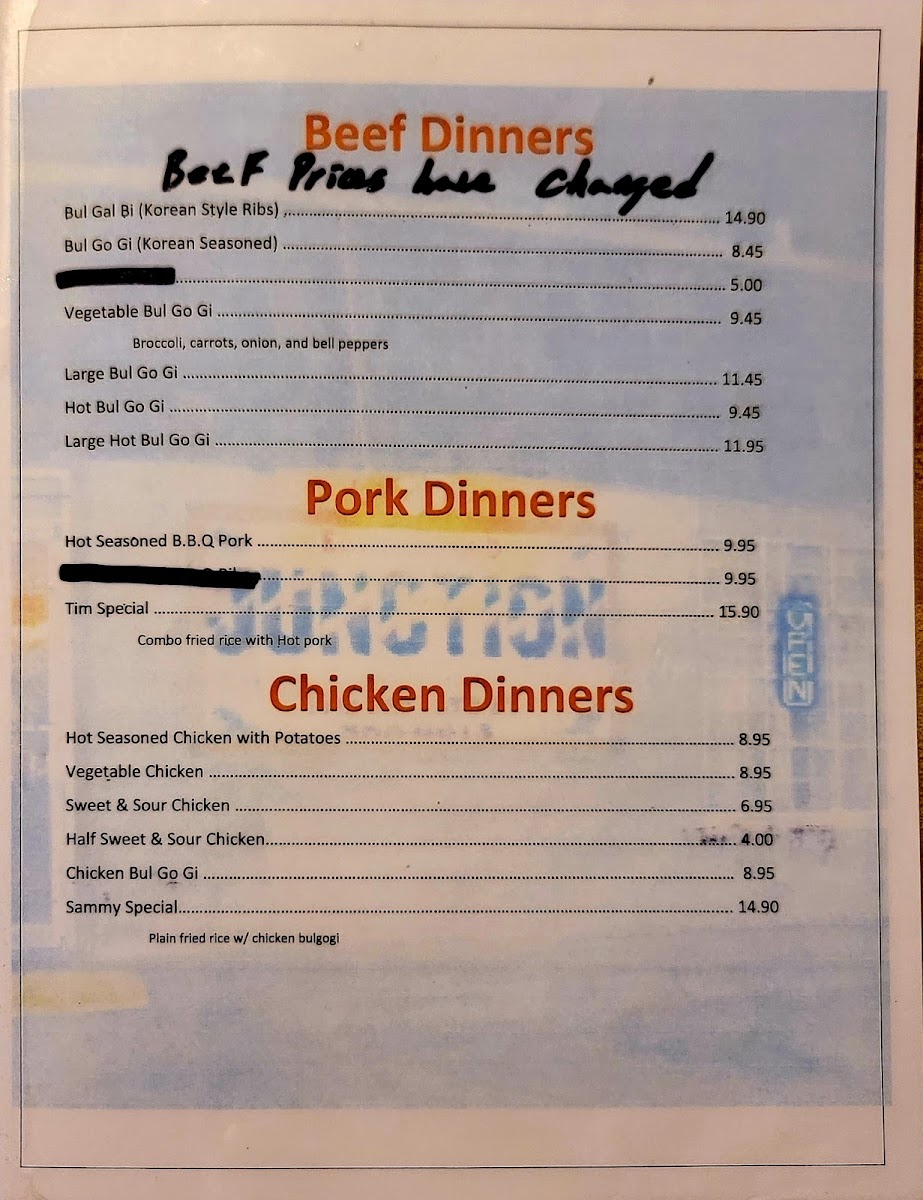 Beef Dinners
Beef Prices have changed
Bul Gal Bi (Korean Style Ribs) ........ 14.90
Bul Go Gi (Korean Seasoned) ........ 8.45
........ 5.00
Vegetable Bul Go Gi ........ 9.45
Broccoli, carrots, onion, and bell peppers
Large Bul Go Gi ........ 11.45
Hot Bul Go Gi ........ 9.45
Large Hot Bul Go Gi ........ 11.95
Pork Dinners
Hot Seasoned B.B.Q Pork ........ 9.95
........ 9.95
Tim Special ........ 15.90
Combo fried rice with Hot pork
OPEN
Chicken Dinners
Hot Seasoned Chicken with Potatoes ........ 8.95
Vegetable Chicken ........ 8.95
Sweet & Sour Chicken ........ 6.95
Half Sweet & Sour Chicken........ 4.00
Chicken Bul Go Gi ........ 8.95
Sammy Special........ 14.90
Plain fried rice w/ chicken bulgogi